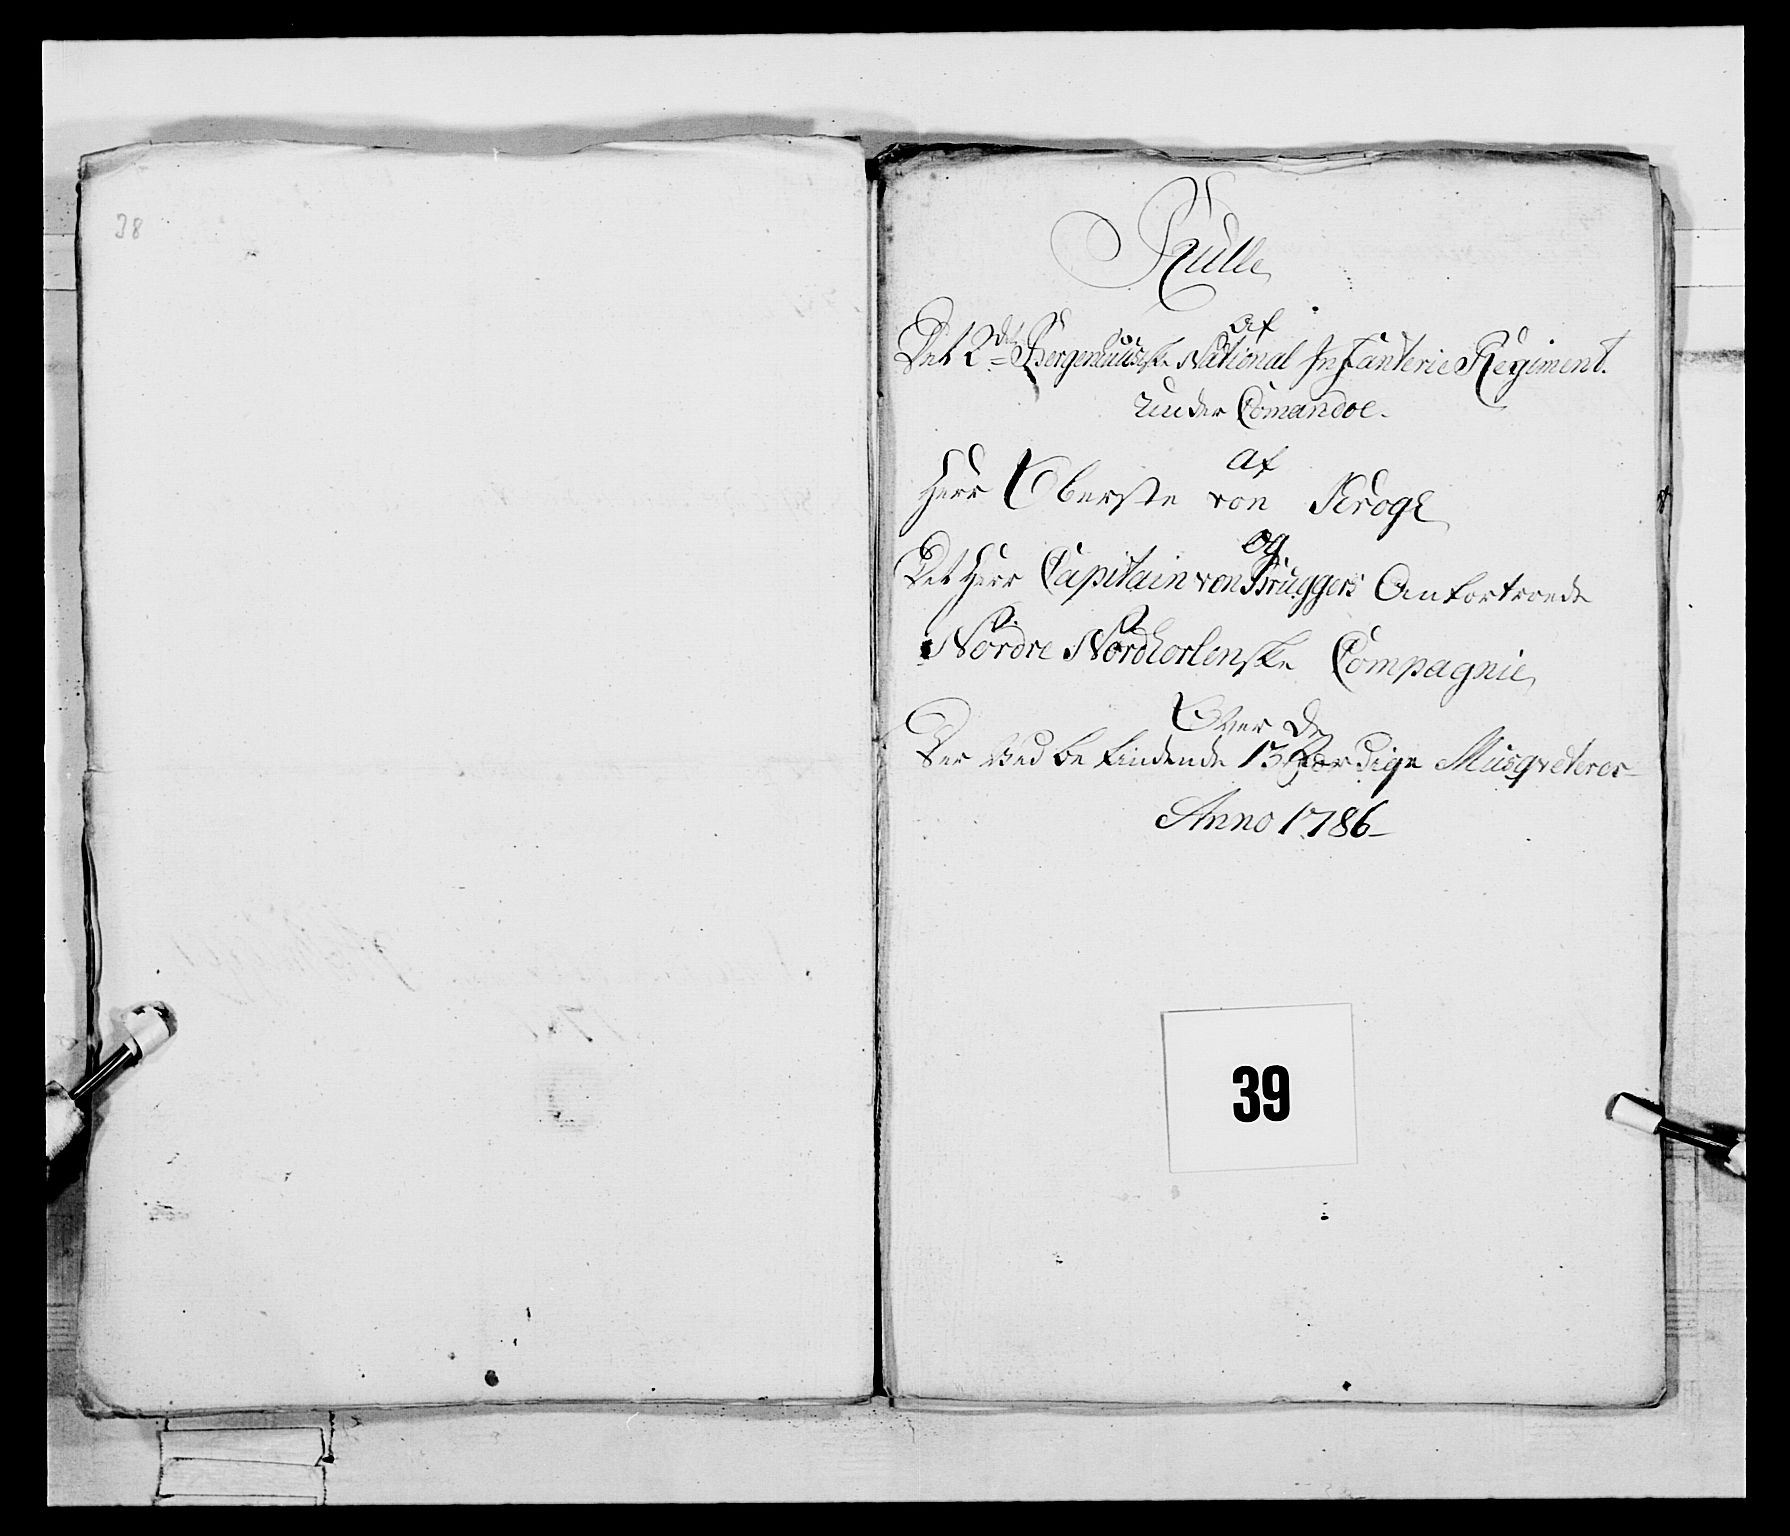 38
Rulle
af
Det 2det Bergenhuusiske National Infanterie Regiment.
Under Comandoe
af
Herr Oberste von Krogh
og
Det Herr Capitain von Brüggers Anfortroede
Nordre Nordhorlenske Compagnie
Over de
Der Ved befindende 13 Færdige Musqveterer
Anno 1786
39